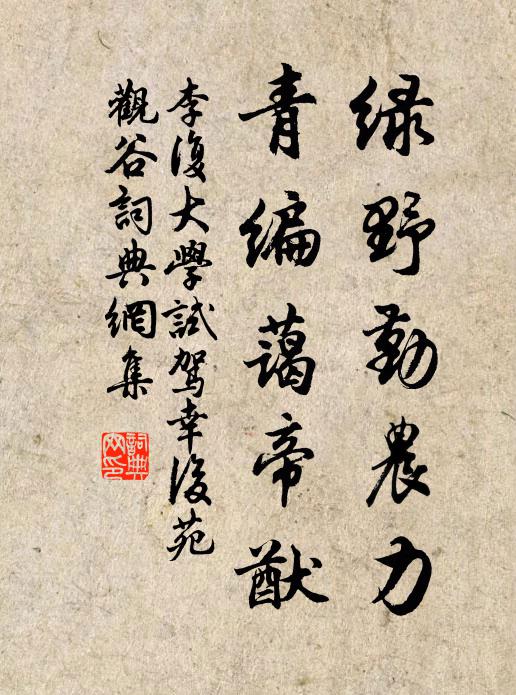 绿野勤農力
青编藹帝猷
李復大學試駕幸後苑
觀谷詞典網集
詞典網印